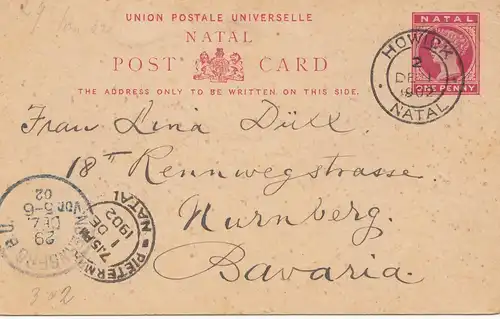 UNION POSTALE UNIVERSELLE
NATAL
POST CARD
THE ADDRESS ONLY TO BE WRITTEN ON THIS SIDE.
NATAL
ONE PENNY
HOWICK
2
DE 1
1902
NATAL
Frau Lina Düll.
18II Rennwegstrasse
Nurnberg.
Bavaria.
PIETERMARITZBURG
7.15 PM
1 DE
1902
NATAL
29
DEZ.
VOR.5-6
02